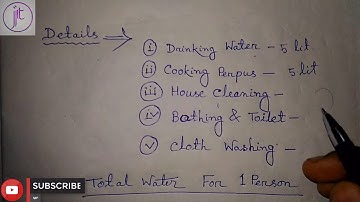 jit
Details
(i) Drinking Water - 5 lit
(ii) Cooking Perpus - 5 lit
(iii) House Cleaning -
(iv) Bathing & Toilet -
(v) Cloth Washing -
SUBSCRIBE
Total Water For 1 Person